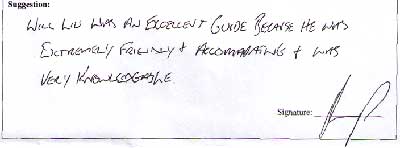 Suggestion:
WILL LIU WAS AN EXCELLENT GUIDE BECAUSE HE WAS
EXTREMELY FRIENDLY & ACCOMODATING & WAS
VERY KNOWLEDGABLE.
Signature: